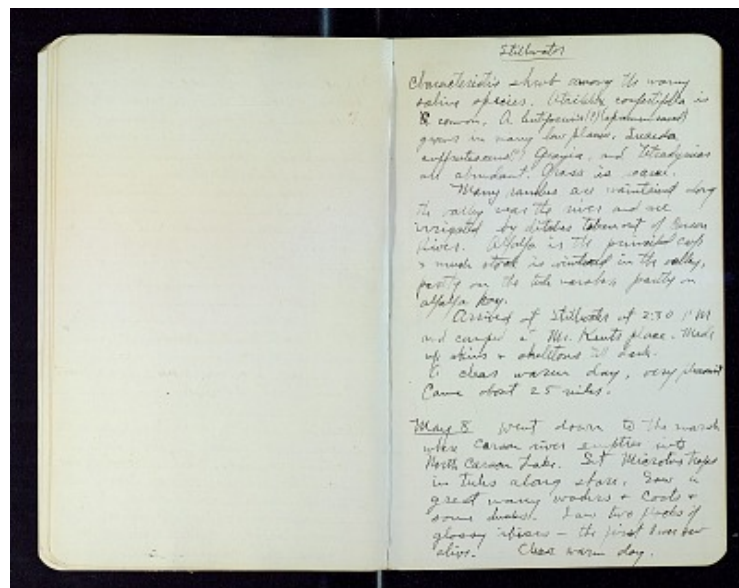 Stillwater
Characteristic shrub among the many
saline species. Atriplex confertifolia is
common. A lentiformis(?)
grows in many low places. Suaeda
suffrutescens(?) Grayia, and Tetradymias
are abundant. Grass is scarce.
Many ranches are maintained along
the valley near the river and are
irrigated by ditches taken out of Carson
River. Alfalfa is the principal crop
& much stock is wintered in the valley,
partly on the tule marshes partly on
alfalfa hay.
Arrived at Stillwater at 2:30 PM
and camped at Mr. Kents place. Made
up skins & skeletons till dark.
clear warm day, very pleasant
Came about 25 miles.
May 8 Went down to the marsh
where Carson river empties into
North Carson Lake. Set Microtus traps
in tules along shore. Saw a
great many waders & Coots &
some ducks. Saw two flocks of
glossy ibises – the first I ever saw
alive. Clear warm day.